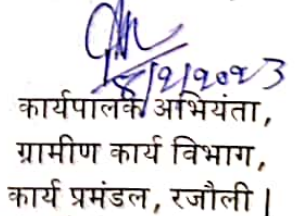 18/2/2023
कार्यपालक अभियंता,
ग्रामीण कार्य विभाग,
कार्य प्रमंडल, रजौली |